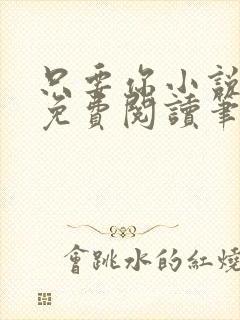 只要你小說
免費閱讀筆
會跳水的紅燒